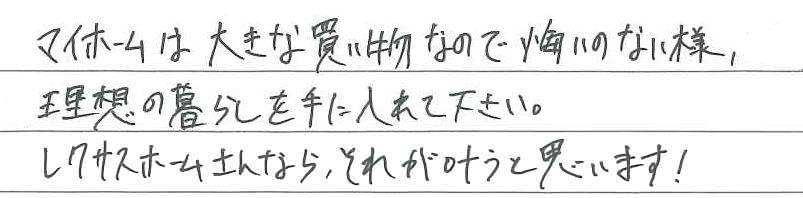 マイホームは大きな買い物なので悔いのない様,
理想の暮らしを手に入れて下さい。
レクサスホームさんなら,それが叶うと思います!